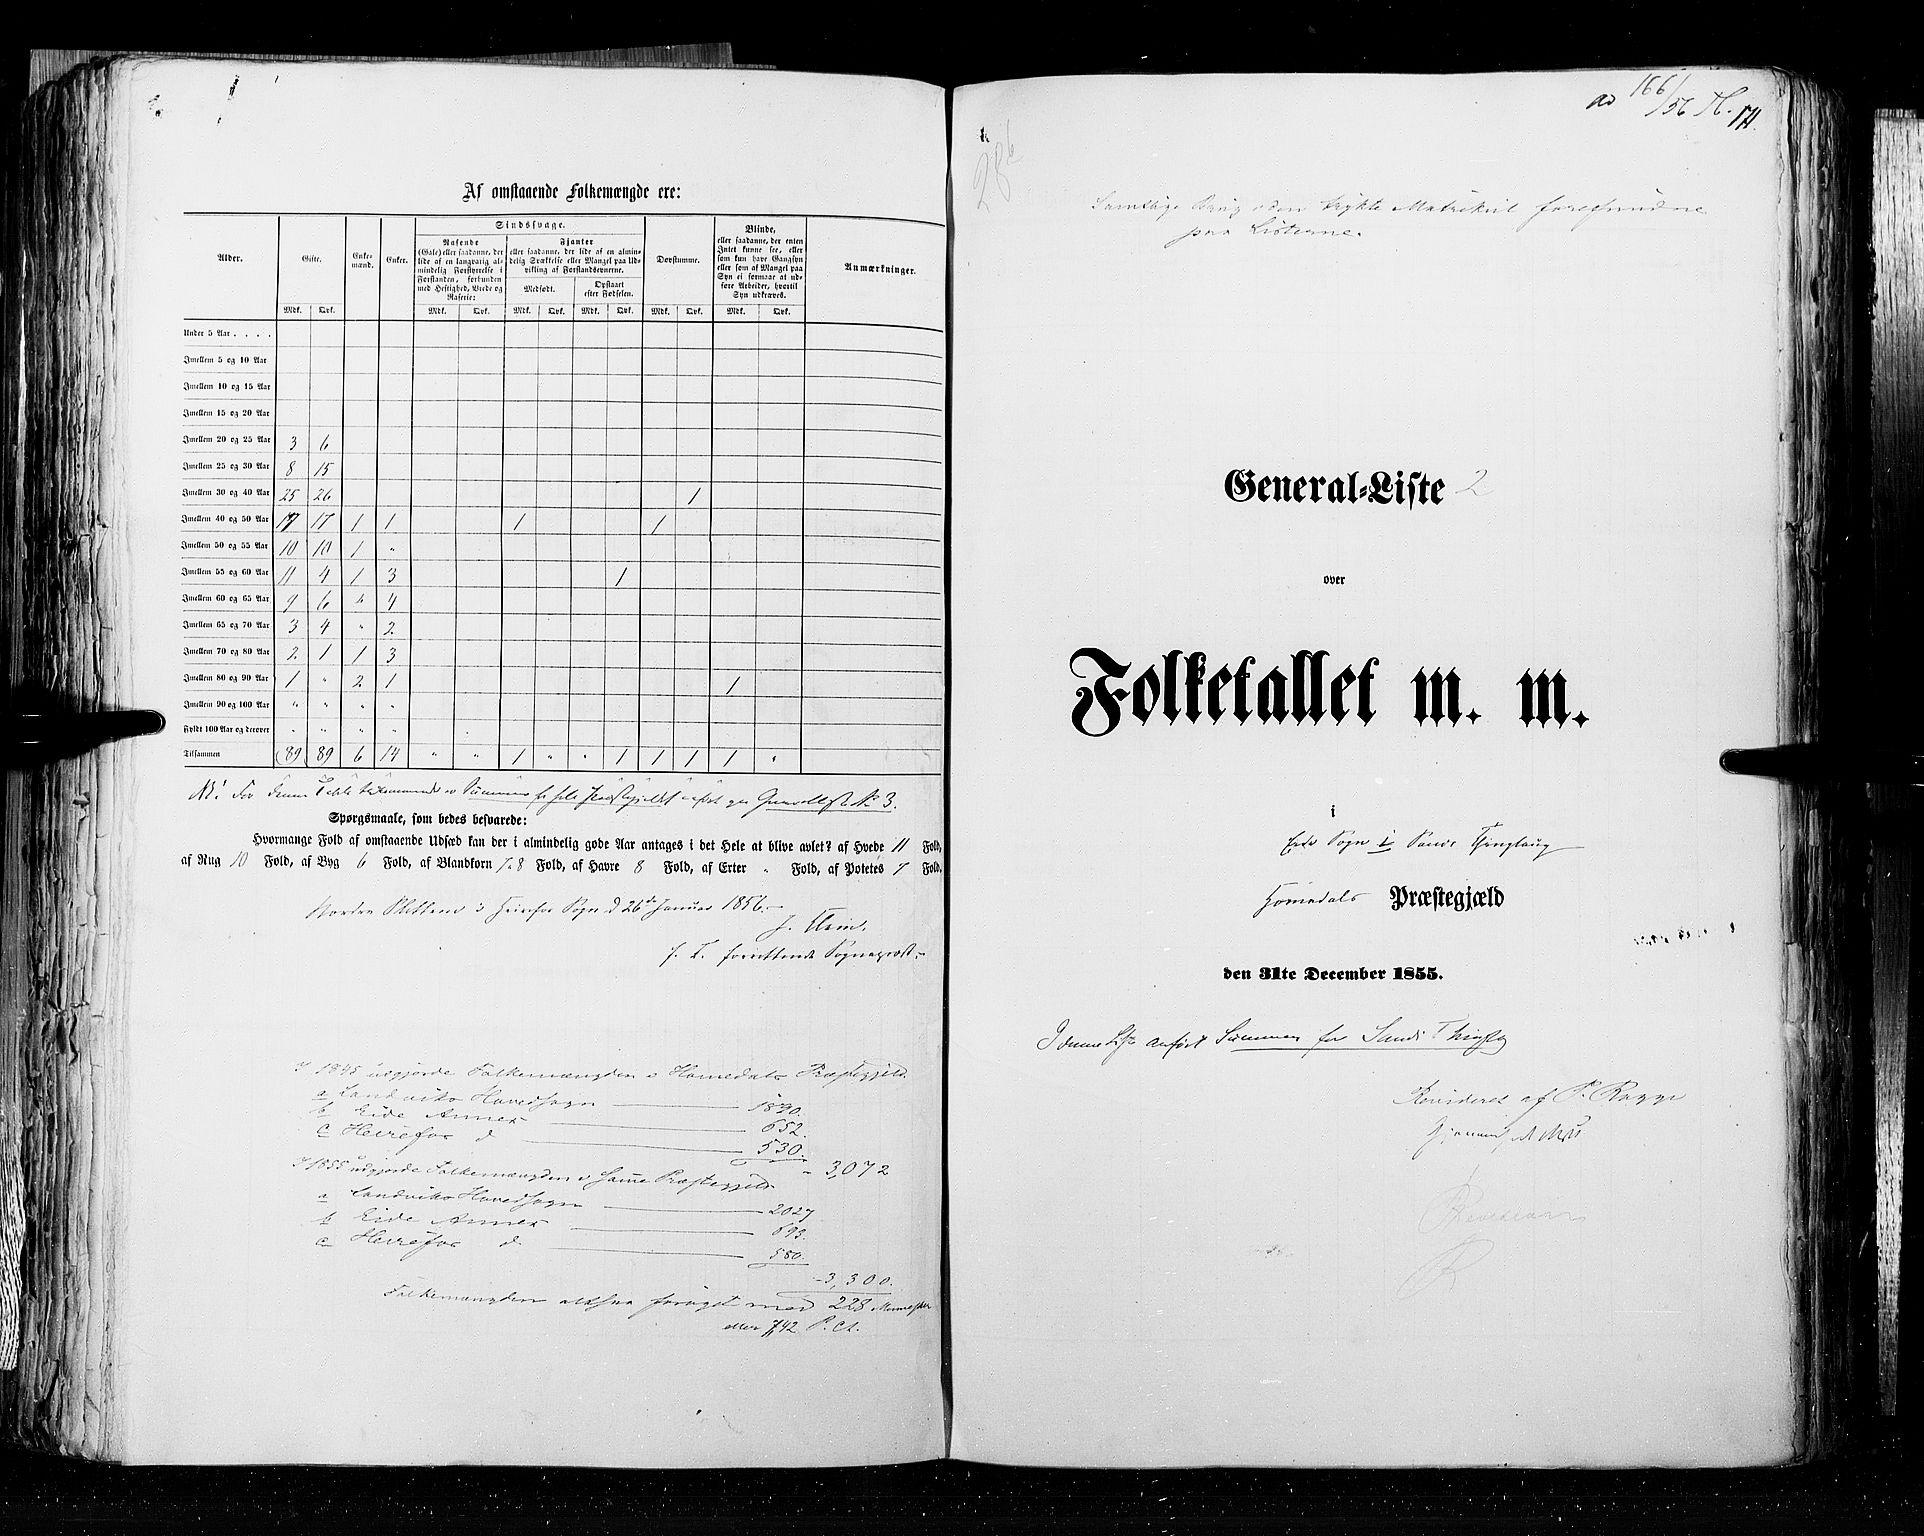 Af omstaaende Folkemængde ere:
Alder. Gifte. Enkemænd. Enker. Sindssvage. Døvstumme. Blinde, Anmærkninger.
Rasende (Gale) eller saadanne, der lide af en langvarig almindelig Forstyrrelse i Forstanden, forbunden med Heftighed, Vrede og Raserie:
Fjanter eller saadanne, der lide af en almindelig Svækkelse eller Mangel paa Udvikling af Forstandsevnerne.
Medfødt. Opstaaet efter Fødselen.
eller saadanne, der enten Intet kunne see, eller som kun have Gangsyn eller som af Mangel paa Syn ei formaae at udføre Arbeider, hvortil Syn udkræves.
Mdk. Qvk. Mdk. Qvk. Mdk. Qvk. Mdk. Qvk. Mdk. Qvk. Mdk. Qvk.
Under 5 Aar . . . .
Imellem 5 og 10 Aar
Imellem 10 og 15 Aar
Imellem 15 og 20 Aar
Imellem 20 og 25 Aar 3 6
Imellem 25 og 30 Aar 8 15
Imellem 30 og 40 Aar 25 26 1
Imellem 40 og 50 Aar 17 17 1 1 1 1
Imellem 50 og 55 Aar 10 10 1 "
Imellem 55 og 60 Aar 11 4 1 3 1
Imellem 60 og 65 Aar 9 6 " 4
Imellem 65 og 70 Aar 3 4 " 2
Imellem 70 og 80 Aar 2 1 1 3
Imellem 80 og 90 Aar 1 " 2 1 1
Imellem 90 og 100 Aar " " " "
Fyldt 100 Aar og derover " " " "
Tilsammen 89 89 6 14 " " 1 " " 1 1 1 1 "
Spørgsmaale, som bedes besvarede:
Hvormange Fold af omstaaende Udsæd kan der i almindelig gode Aar antages i det Hele at blive avlet? af Hvede 11 Fold,
af Rug 10 Fold, af Byg 6 Fold, af Blandkorn 7 a 8 Fold, af Havre 8 Fold, af Erter " Fold, af Potetes 7 Fold.
Herefos Sogn d 26de Januar 1856.
I 1845 udgjorde Folkemængden i Homedals Præstegjeld
a Landviks Hovedsogn 1890.
b Eide Annex 652.
c Heirefos d 530.
3,072
I 1855 udgjorde Folkemængden i samme Præstegjeld
a Landviks Hovedsogn 2027
b Eide Annex 693.
c Heirefos d 580.
3,300.
Folkemængden altsaa forøget med 228 Mennesker
eller 7,42 P. Ct.
ad 166/56 171.
286
Samtlige Brug i den trykte Matrikul forefundne
paa Listerne.
General-Liste 2
over
Folketallet m. m.
i
Eide Sogn i Sands Thinglaug
Homedals Præstegjæld
den 31te December 1855.
I denne Liste anført Summen for Sands Thinglag
Revideret af P. Ragge